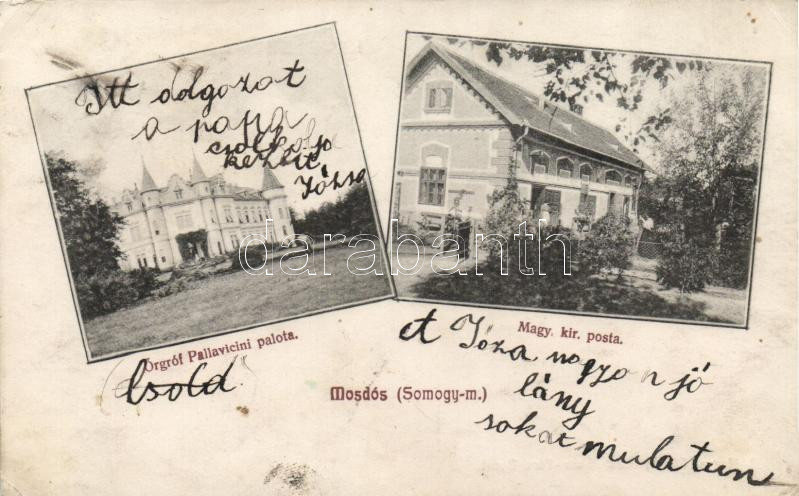 Itt dolgozat
a papa
csolkolja
kezeit
Józsa
darabanth.com
Őrgróf Pallavicini palota.
Magy. kir. posta.
Csold
Mosdós (Somogy-m.)
A Józsa nagyon jó
lány
sokat mulatun